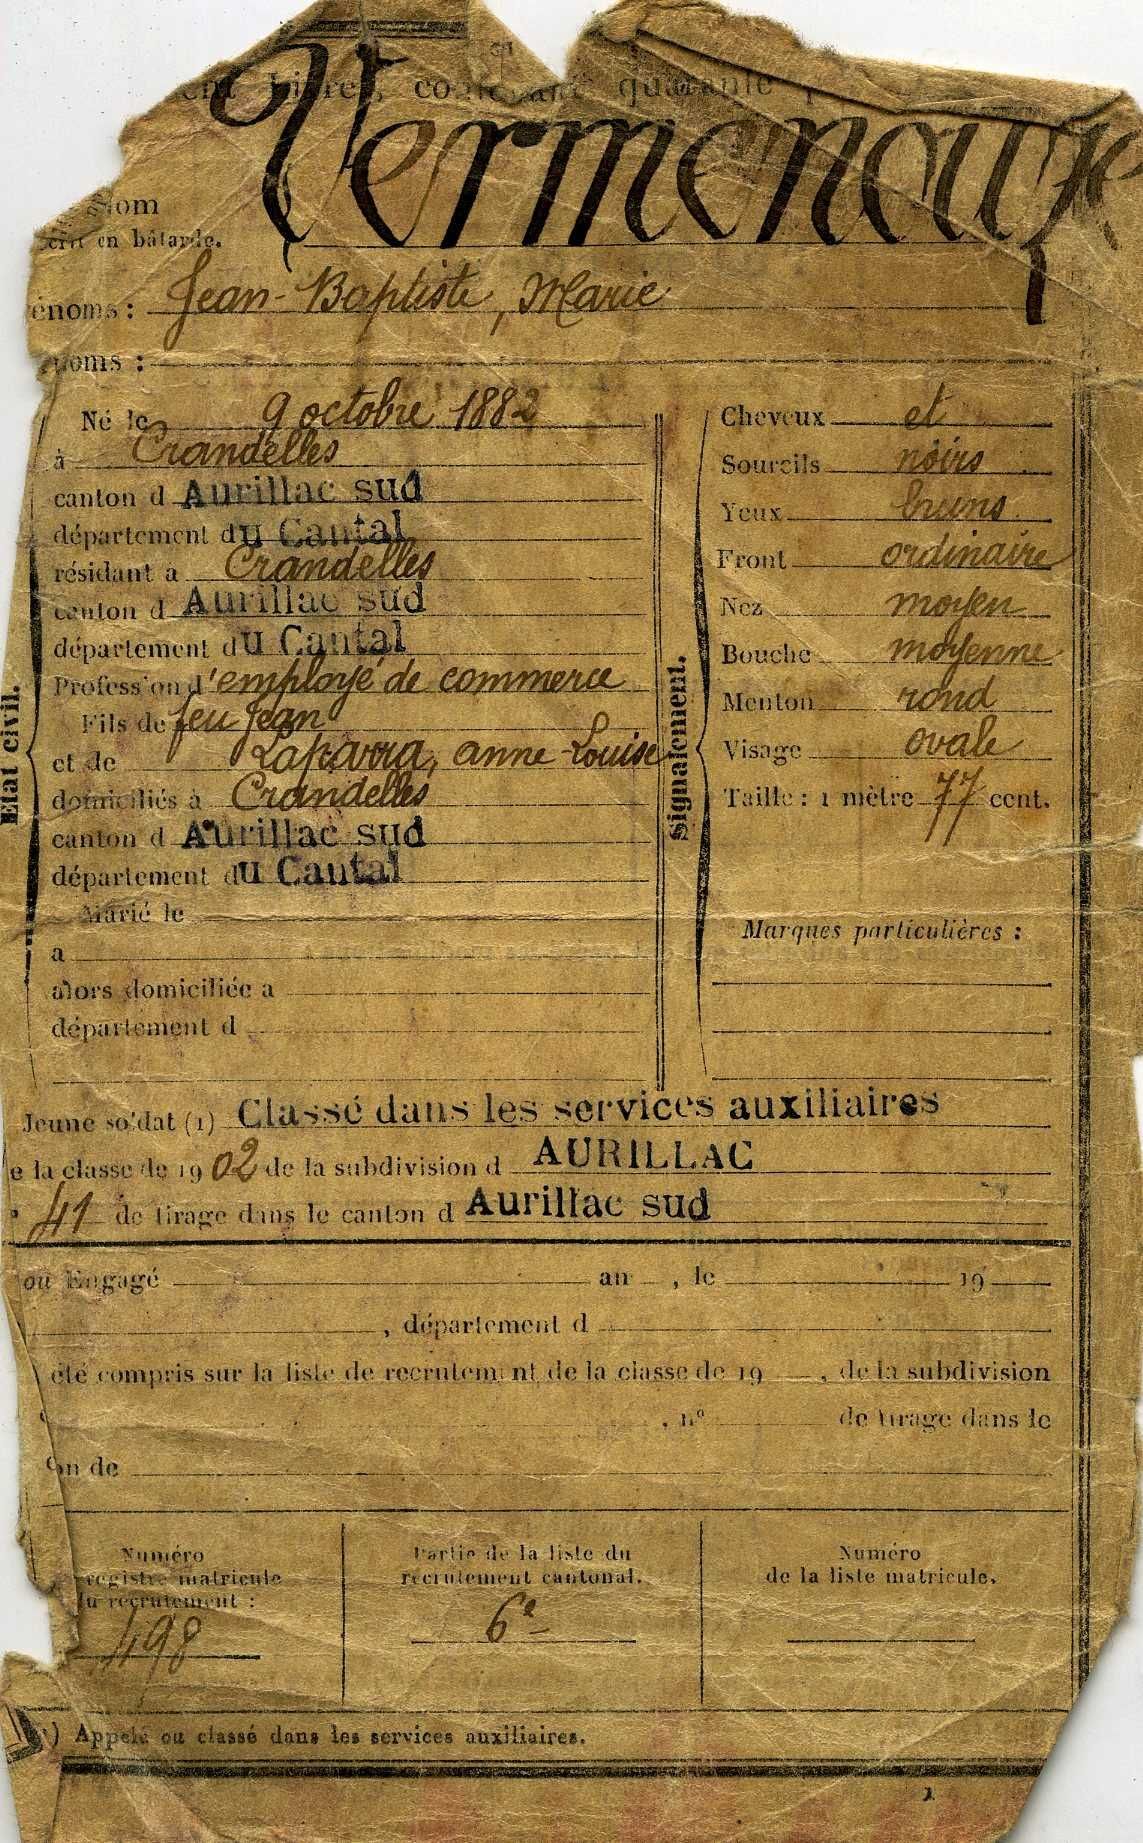 ent livret, contenant quarante p
Nom
écrit en bâtarde.
Vermenouze
énoms : Jean-Baptiste, Marie
noms :
Né le 9 octobre 1882
à Crandelles
canton d Aurillac sud
département du Cantal
résidant à Crandelles
canton d Aurillac sud
département du Cantal
Profession d'employé de commerce
Fils de feu Jean
et de Laparra, anne-Louise
domiciliés à Crandelles
canton d Aurillac sud
département du Cantal
Marié le
à
alors domiciliée à
département d
Etat civil.
Signalement.
Cheveux et
Sourcils noirs
Yeux bruns
Front ordinaire
Nez moyen
Bouche moyenne
Menton rond
Visage ovale
Taille : 1 mètre 77 cent.
Marques particulières :
Jeune soldat (1) Classé dans les services auxiliaires
e la classe de 1902 de la subdivision d AURILLAC
41 de tirage dans le canton d Aurillac sud
ou Engagé an , le 19
, département d
été compris sur la liste de recrutement de la classe de 19 , de la subdivision
, n° de tirage dans le
on de
Numéro
registre matricule
du recrutement :
498
Partie de la liste du
recrutement cantonal.
6e
Numéro
de la liste matricule.
) Appelé ou classé dans les services auxiliaires.
1